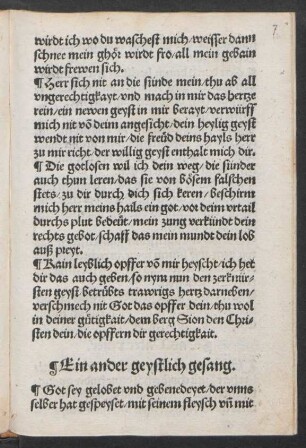 wirdt ich wo du waschest mich / weisser dann
schnee mein ghör wirdt fro / all mein gebain
wirdt frewen sich.
¶ Herr sich nit an die sünde mein / thu ab all
vngerechtigkayt / vnd mach in mir das hertze
rein / ein newen geyst in mir berayt / verwürff
mich nit vō deim angesicht / dein heylig geyst
wendt nit von mir / die freüd deins hayls herr
zu mir richt / der willig geyst enthalt mich dir.
¶ Die gotlosen wil ich dein weg / die sünder
auch thun leren / das sie von bösem falschen
stets / zu dir durch dich sich keren / beschirm
mich herr meins hails ein got / vor dem vrtail
durchs plut bedeüt / mein zung verkündt dein
rechts gebot / schaff das mein mundt dein lob
auß preyt.
¶ Kain leyblich opffer vō mir heyscht / ich het
dir das auch geben / so nym nun den zerknür-
sten geyst betrübts trawrigs hertz darneben /
verschmech nit Got das opffer dein / thu wol
in deiner gütigkait / dem berg Sion den Chri-
sten dein / die opffern dir gerechtigkait.
¶ Ein ander geystlich gesang.
¶ Got sey gelobet vnd gebenedeyet / der vnns
selber hat gespeyset / mit seinem fleysch vñ mit